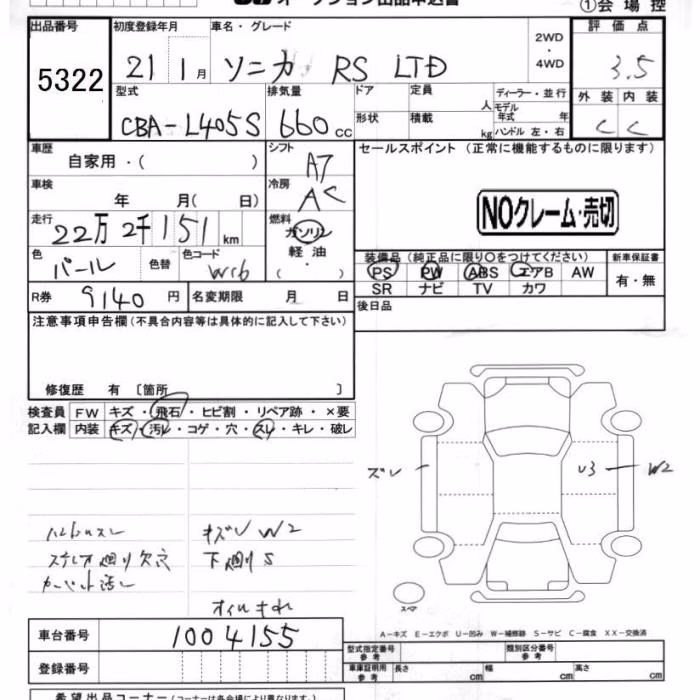 オークション出品申込書 ①会場控
出品番号 初度登録年月 車名・グレード 2WD・4WD 評価点
5322 21 1月 ソニカ RS LTD 3.5
型式 排気量 ドア 定員 人 ディーラー・並行 外装 内装
CBA-L405S 660cc 形状 積載 kg モデル年式 年 ハンドル 左・右 C C
車歴 自家用・( ) シフト A7 セールスポイント (正常に機能するものに限ります)
車検 年 月(日) 冷房 AC
NOクレーム・売切
走行 22万2千151km 燃料 ガソリン 軽油 ( ・ )
色 パール 色替 色コード W16
装備品 (純正品に限り〇をつけてください) 新車保証書
PS PW ABS エアB AW 有・無
SR ナビ TV カワ
R券 9140円 名変期限 月 日 後日品
注意事項申告欄 (不具合内容等は具体的に記入して下さい)
修復歴 有 〔箇所 〕
検査員 FW キズ・飛石・ヒビ割・リペア跡・×要
記入欄 内装 キズ・汚レ・コゲ・穴・スレ・キレ・破レ
ズレ U3 W2
ハンドルスレ キズレ W2
ステレオ廻り欠穴 下廻りS
カーペット汚レ
オイルもれ
スペア
A-キズ E-エクボ U-凹み W-補修跡 S-サビ C-腐食 XX-交換済
車台番号 1004155
型式指定番号 参考 類別区分番号 参考
登録番号 車庫証明用 参考 長さ cm 幅 cm 高さ cm
希望出品コーナー (コーナーは各会場により異なります)